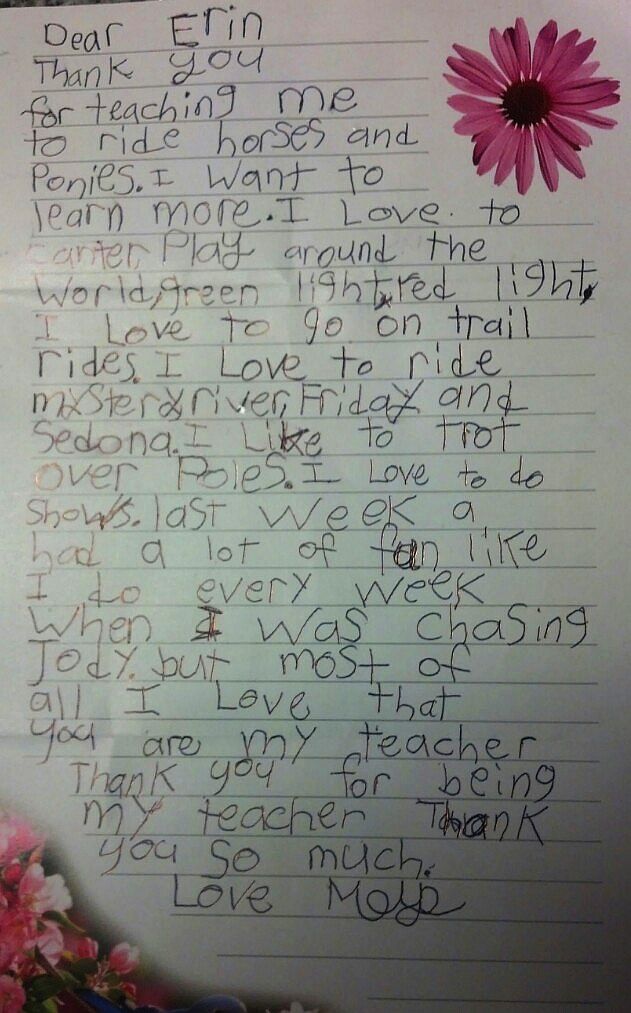 Dear Erin
Thank you
for teaching me
to ride horses and
Ponies. I want to
learn more. I Love to
canter, Play around the
World, green light, red light,
I Love to go on trail
rides. I Love to ride
mystery, river, Friday and
Sedona. I Like to trot
over Poles. I Love to do
Shows. last week a
had a lot of fun like
I do every week
When I was chasing
Jody. but most of
all I Love that
you are my teacher
Thank you for being
my teacher Thank
you so much.
Love Maya